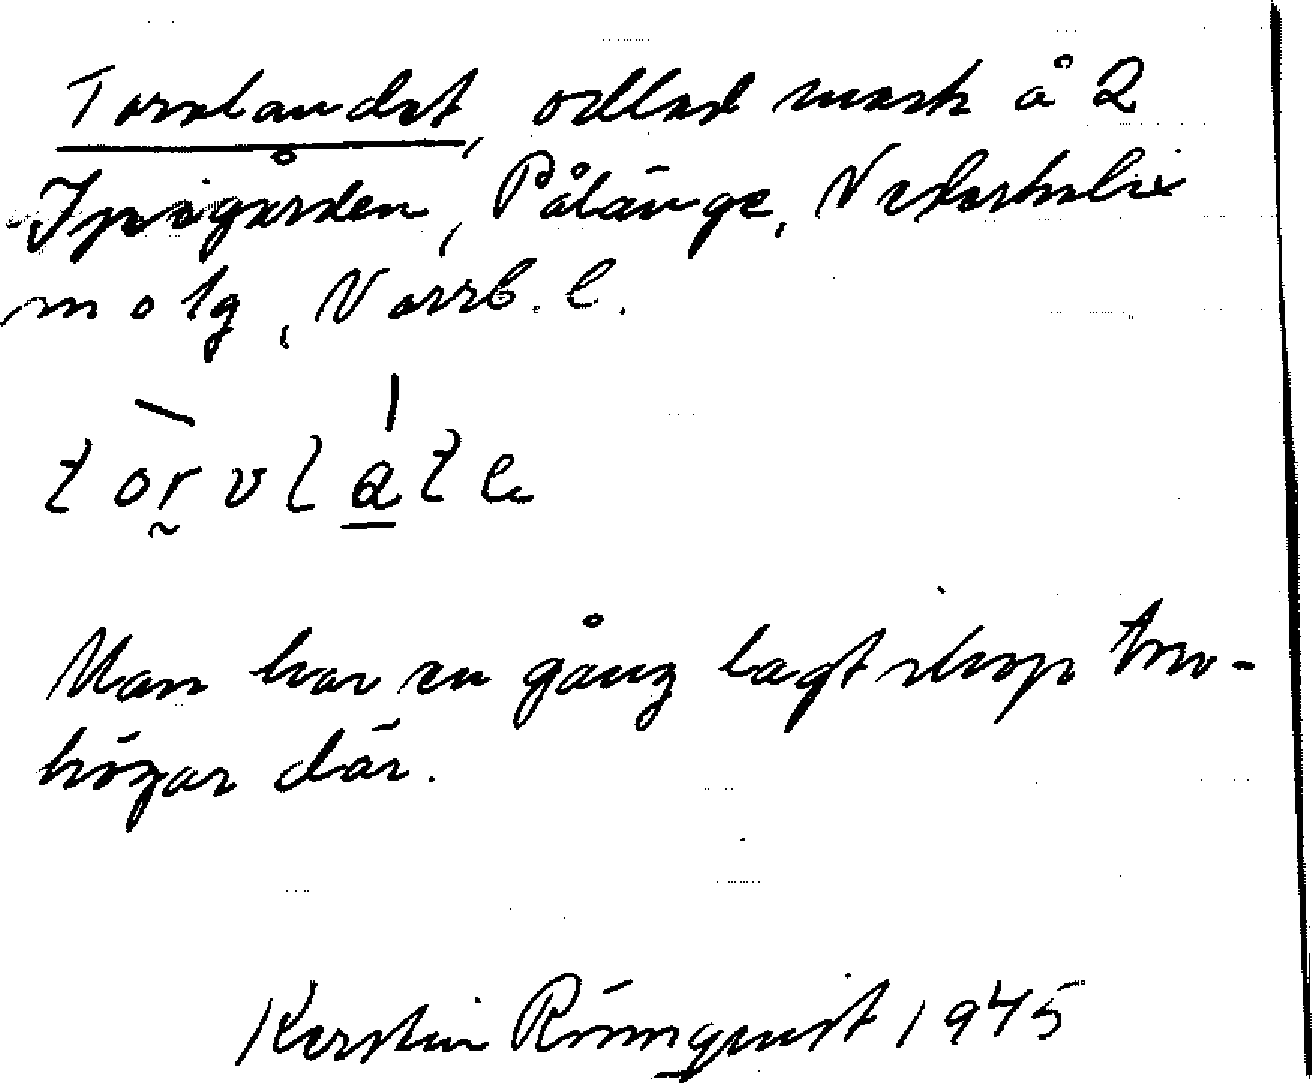 Torvlandet, odlad mark å 2
Jpsigården, Pålänge, Nederkalix
, Norrb. l.
torvlate
Man har en gång lagt ihop torv-
högar där.
Kerstin Rönnquist 1945